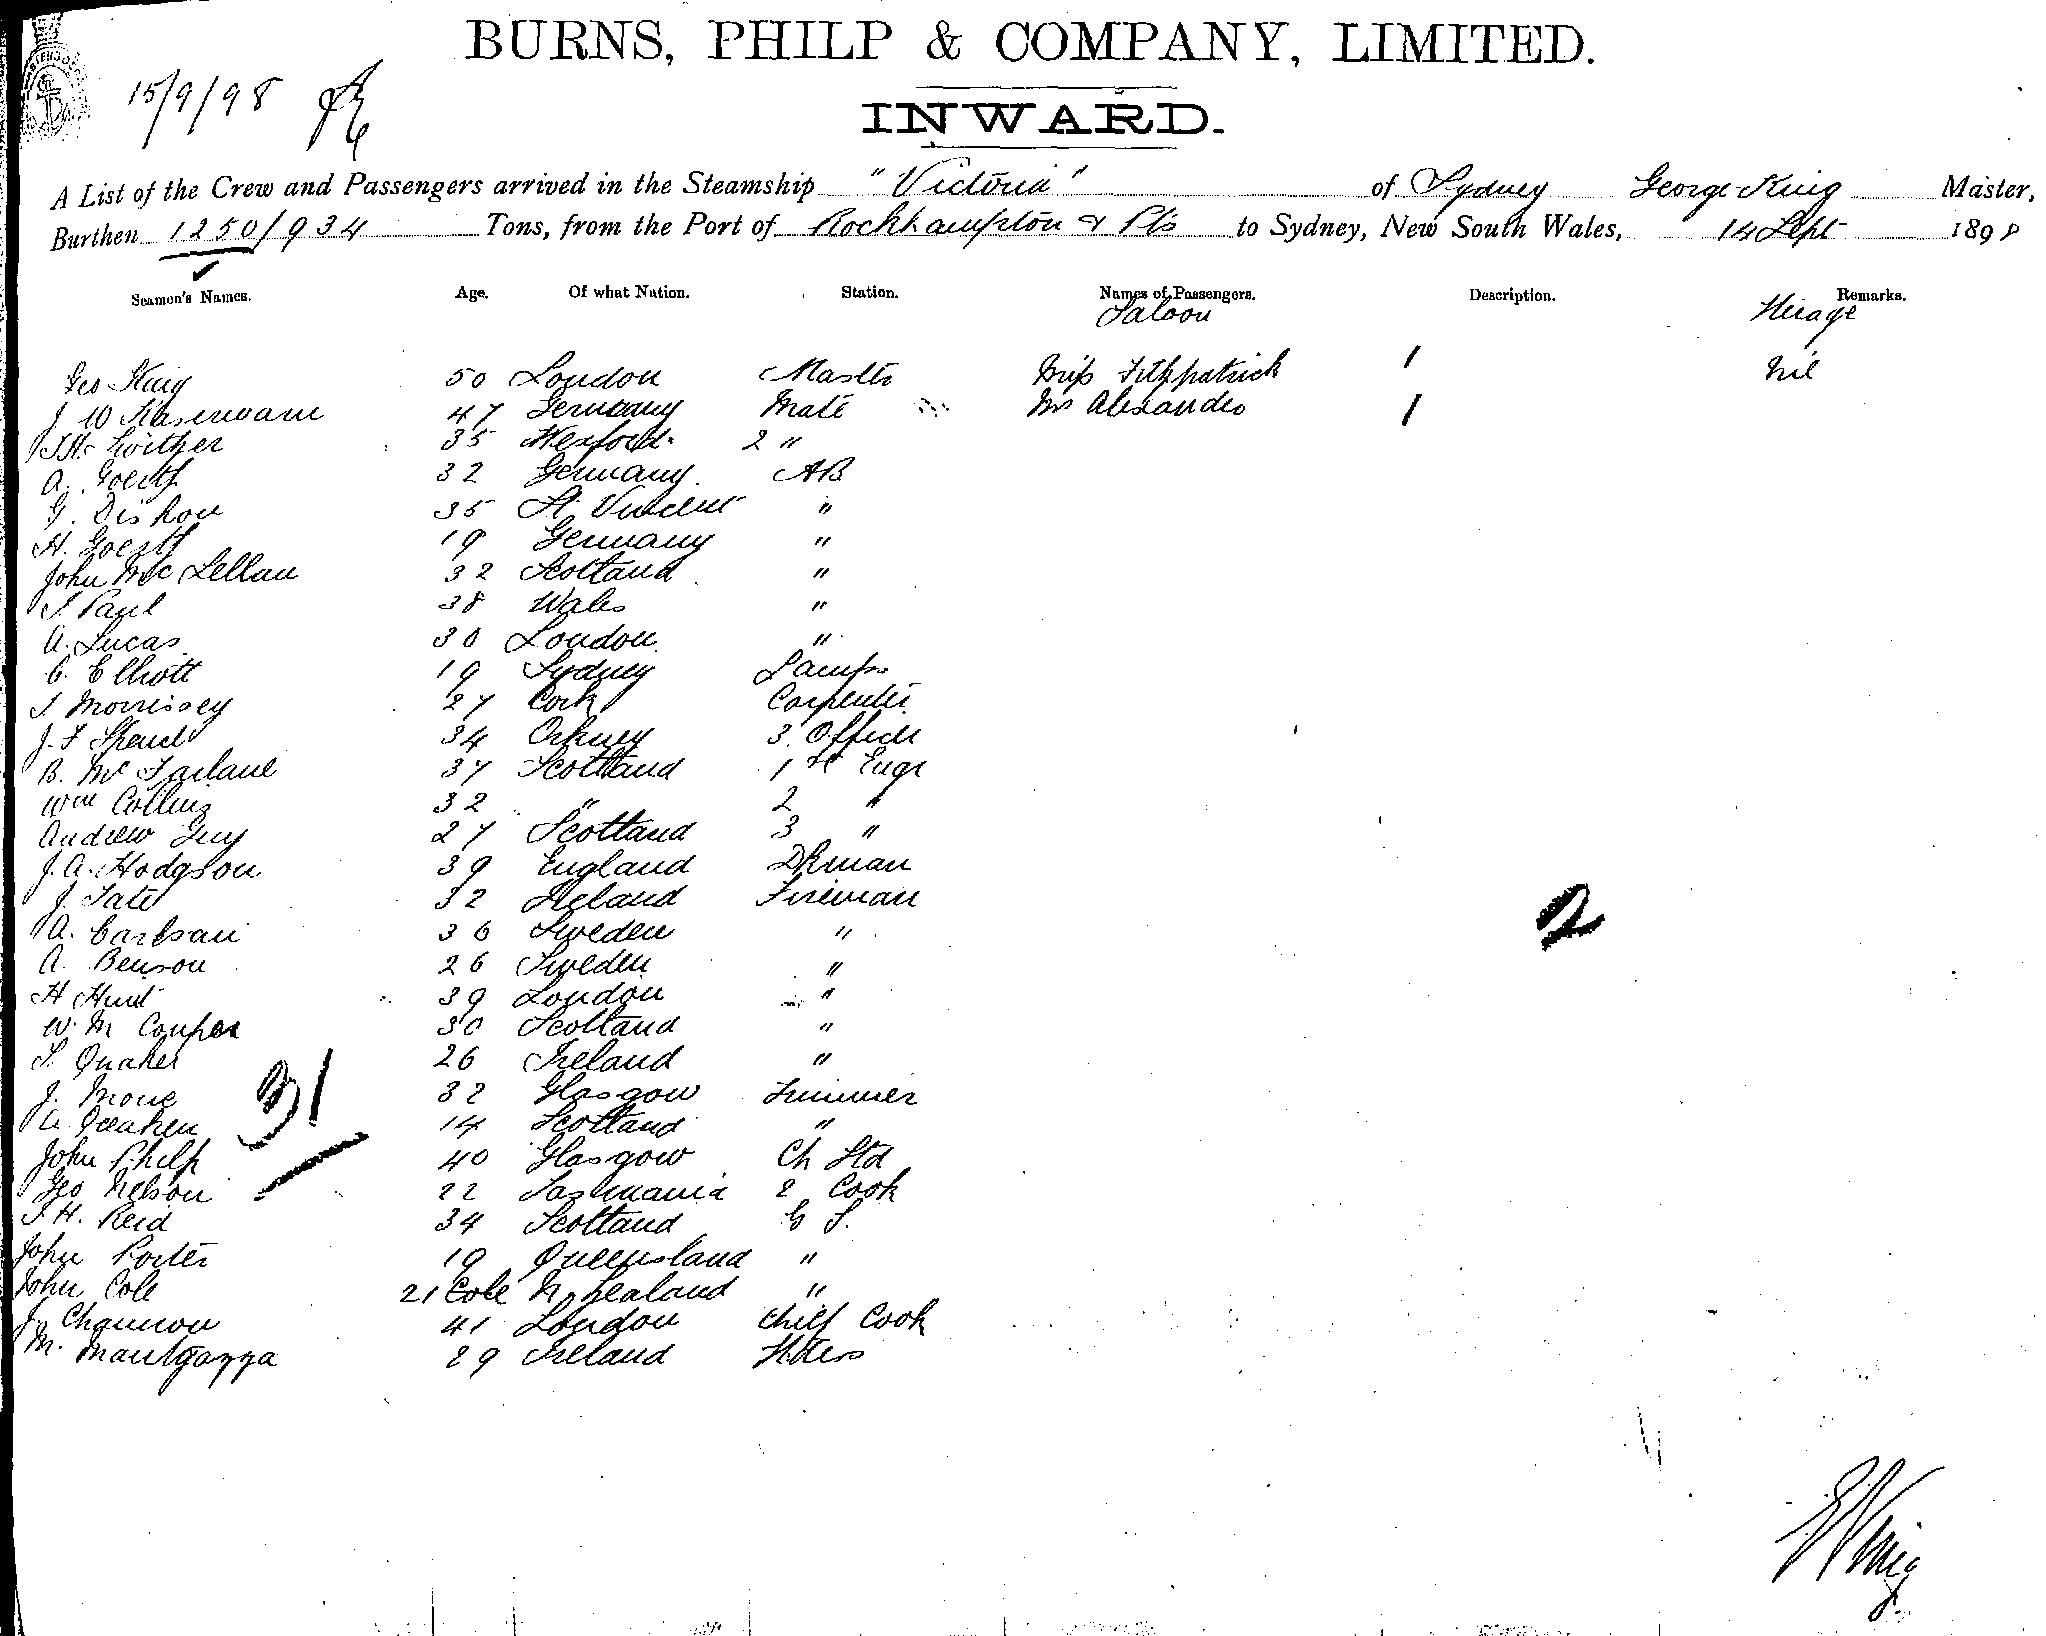 BURNS, PHILP & COMPANY, LIMITED.
15/9/98
INWARD.
A List of the Crew and Passengers arrived in the Steamship "Victoria" of Sydney George King Master,
Burthen 1250/934 Tons, from the Port of Rockhampton & Pts to Sydney, New South Wales, 14 Sept 1898
Seamen's Names. Age. Of what Nation. Station. Names of Passengers. Description. Remarks.
Saloon Steerage
Geo King 50 London Master Miss Fitzpatrick 1 nil
J W 47 Germany Mate Mr Alexander 1
35 Wexford 2 "
A. 32 Germany AB
G. 35 St. Vincent "
H. 19 Germany "
John McLellan 32 Scotland "
Paul 38 Wales "
A. Lucas 30 London "
C. Elliott 19 Sydney Lamps
Morrissey 27 Cork Carpenter
J. F 34 Orkney 3. Officer
B. McFarlane 37 Scotland 1st Engr
Wm Collins 32 " 2 "
Andrew Guy 27 Scotland 3 "
J. A. Hodgson 39 England Dkman
J. Tate 32 Ireland Fireman
A. Carlson 36 Sweden "
A. Benson 26 Sweden "
H Hunt 39 London "
W. M Couper 30 Scotland "
Quaker 26 Ireland "
J. 32 Glasgow Trimmer
14 Scotland "
31
John Philp 40 Glasgow Ch Std
Geo Nelson 22 Tasmania 2 Cook
H. Reid 34 Scotland G S.
John Porter 19 Queensland "
John Cole 21 Cole N. Zealand "
J. Channon 41 London Chief Cook
M. Mantgazza 29 Ireland
2
G King